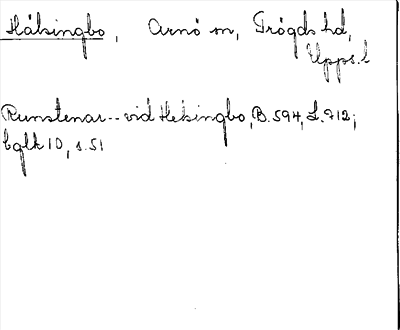 Hälsingbo, Arnö sn, Trögds hd,
Upps. l
Runstenar -- vid Helsingbo, B. 594, L. 712;
bqlk 10, s. 51